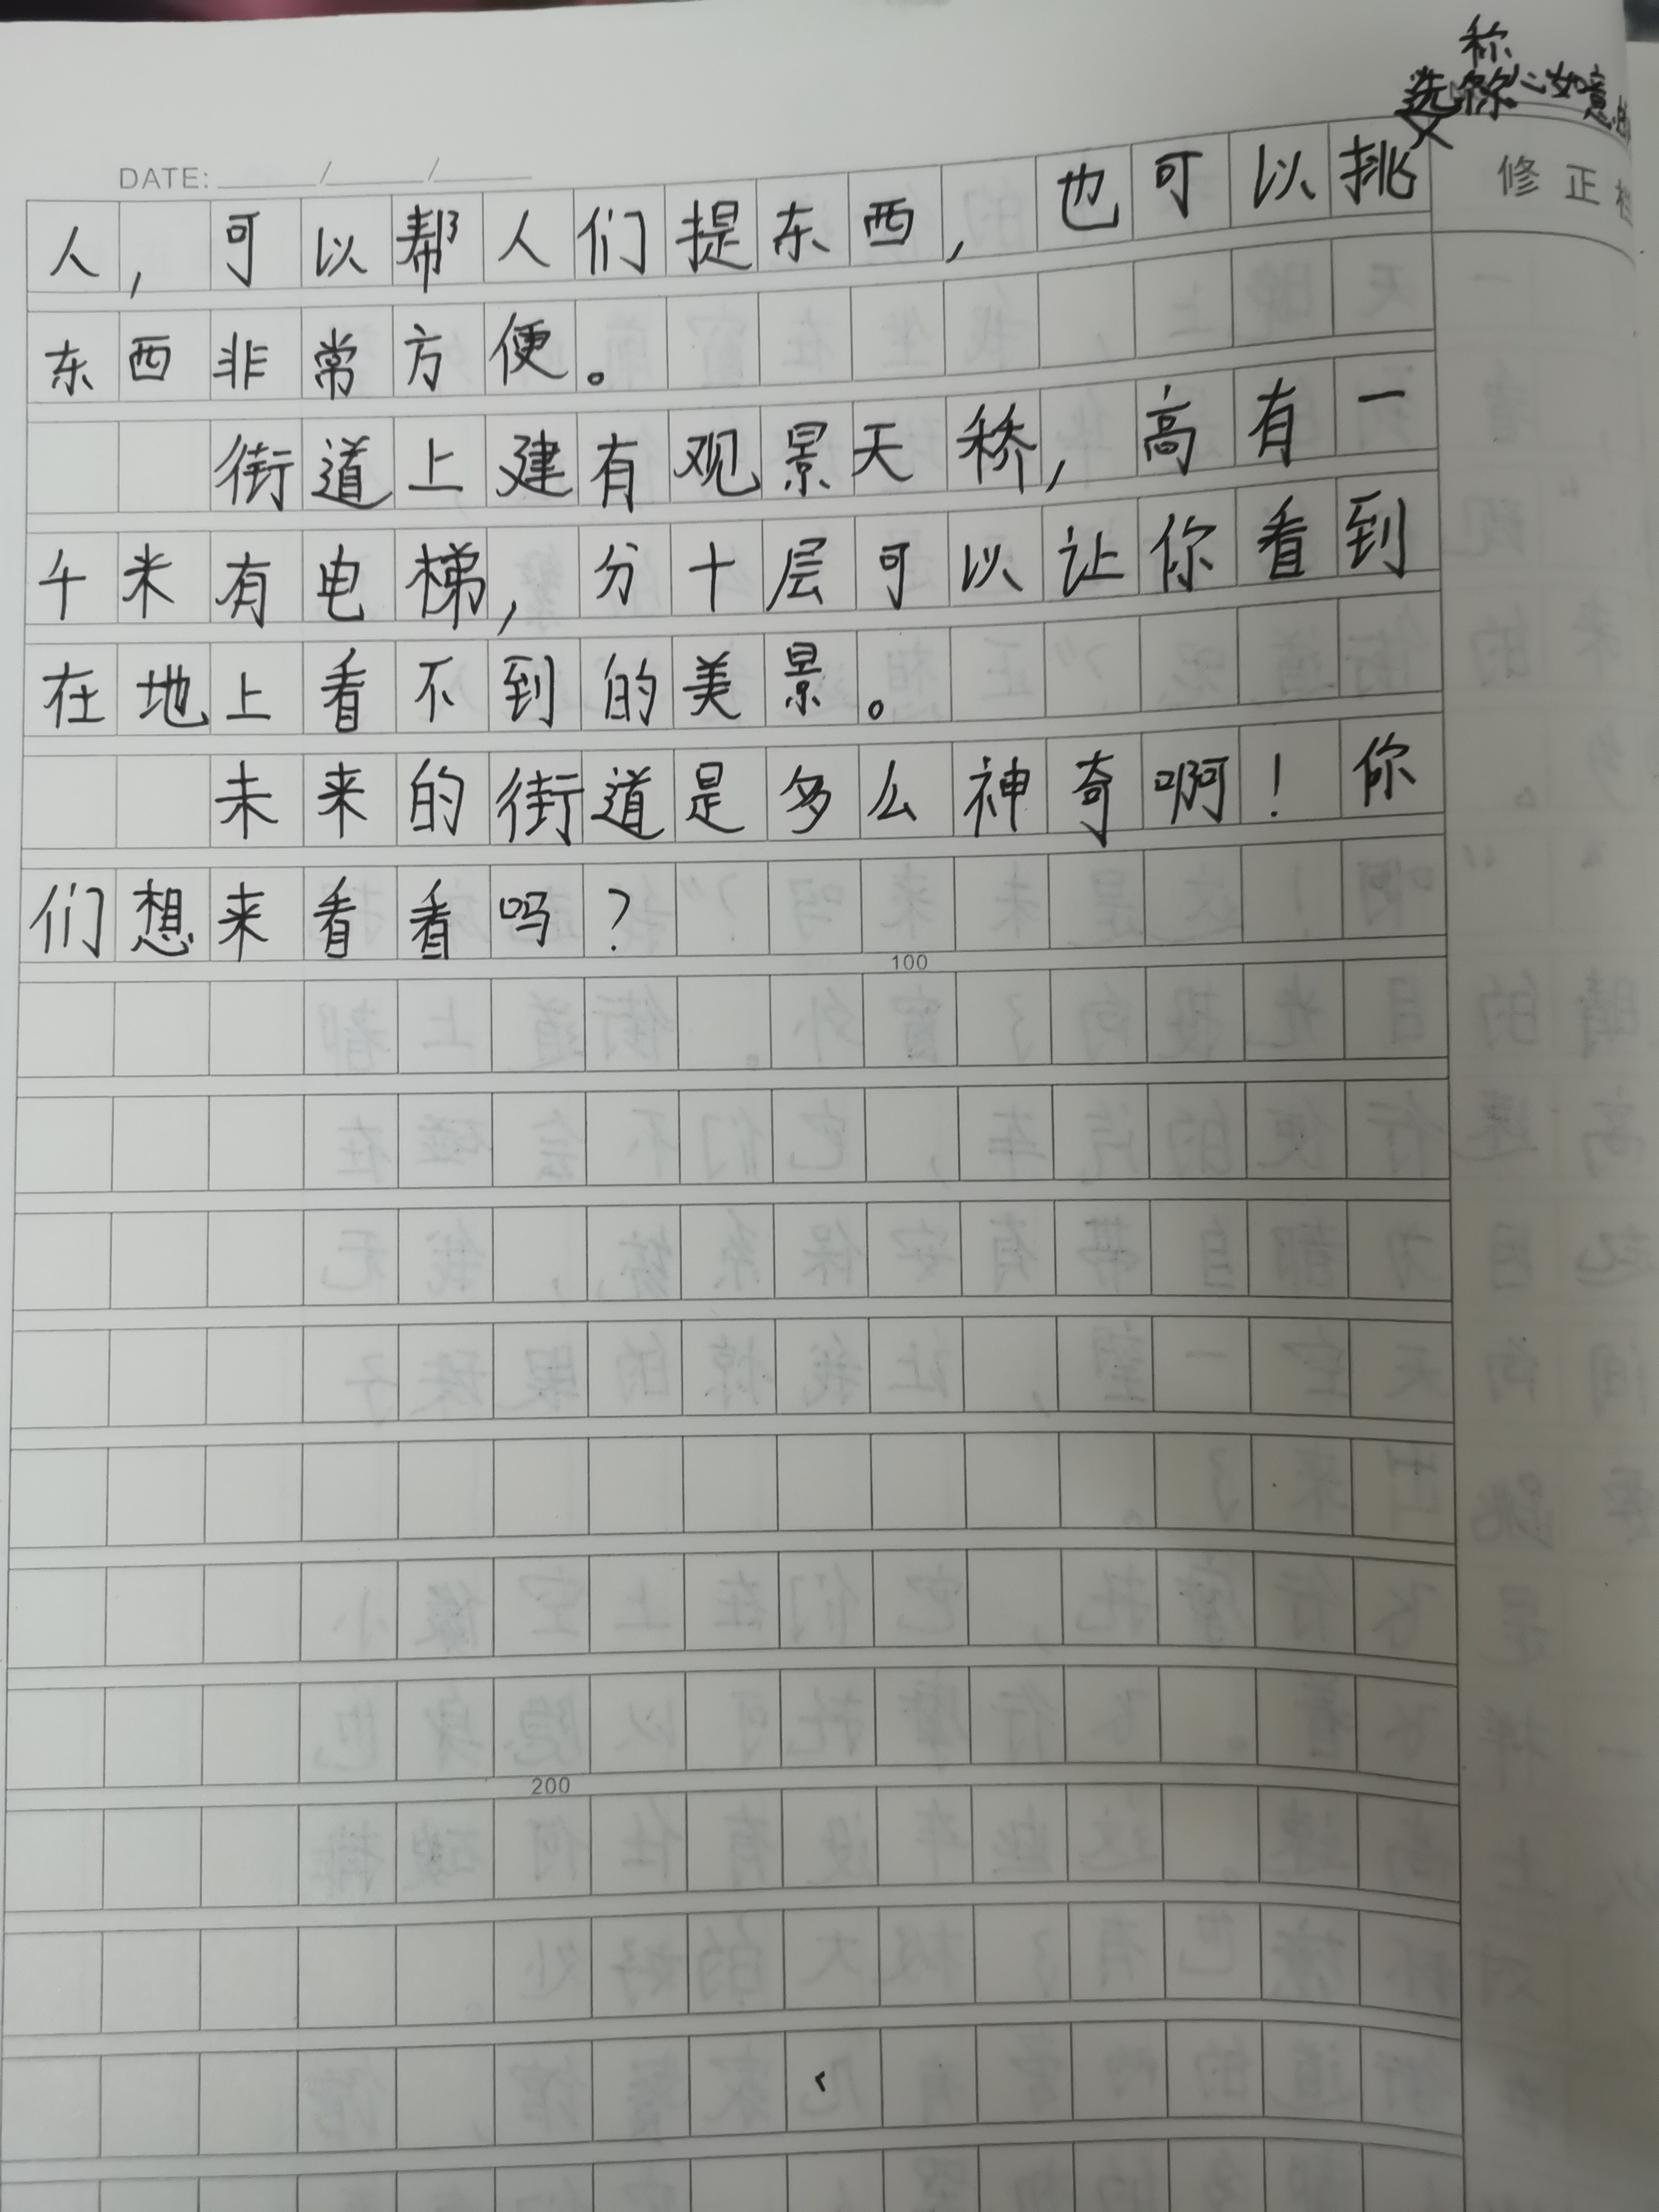 称
选称心如意
DATE: / /
修正
人，可以帮人们提东西，也可以挑
东西非常方便。
街道上建有观景天桥，高有一
千米有电梯，分十层可以让你看到
在地上看不到的美景。
未来的街道是多么神奇啊！你
们想来看看吗？
100
200